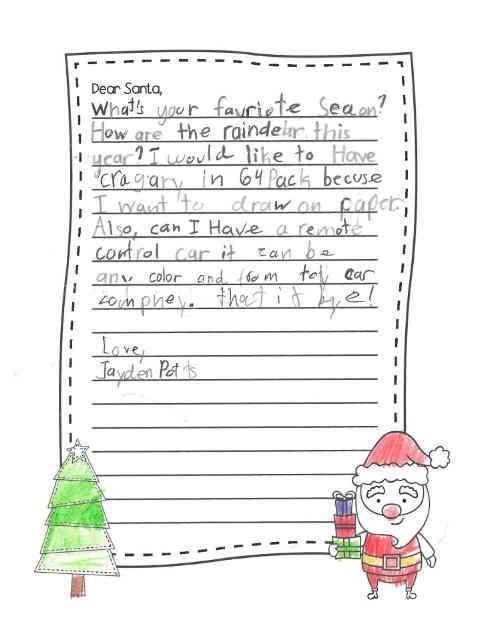 Dear Santa,
What's your favriote Seaon?
How are the raindeir this
year? I would like to Have
cragary in 64 Pack becuse
I want to draw on paper.
Also, can I Have a remote
control car it can be
any color and from toy car
comphey. that it bye!
Love,
Jayden Potts